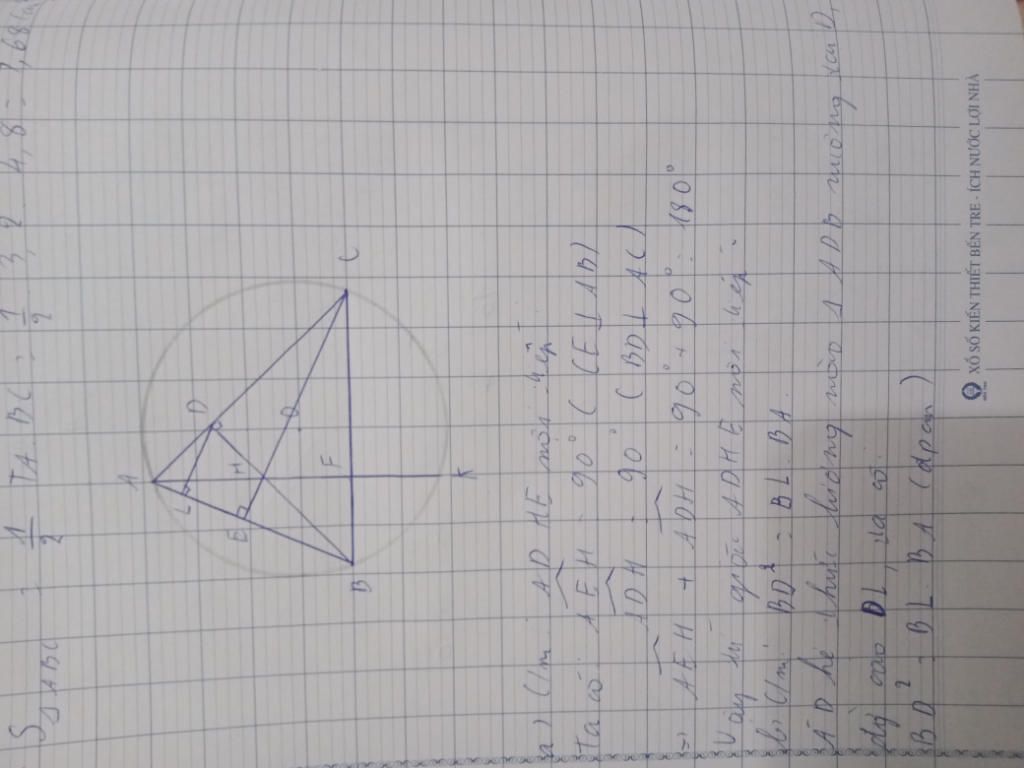 S△ABC = 1/2 TA. BC = 1/2 3,2. 4,8 = 7,68
A
L
D
E
H
O
F
B
C
K
a) C/m: AD HE nội tiếp
Ta có: AEH = 90° (CE⊥AB)
ADH = 90° (BD⊥AC)
=> AEH + ADH = 90° + 90° = 180°
Vậy tứ giác ADHE nội tiếp.
b) C/m: BD² = BL. BA.
AD hệ thức lượng vào △ ADB vuông tại D,
đg cao DL, ta có:
BD² = BL. BA (đpcm)
XỔ SỐ KIẾN THIẾT BẾN TRE - ÍCH NƯỚC LỢI NHÀ